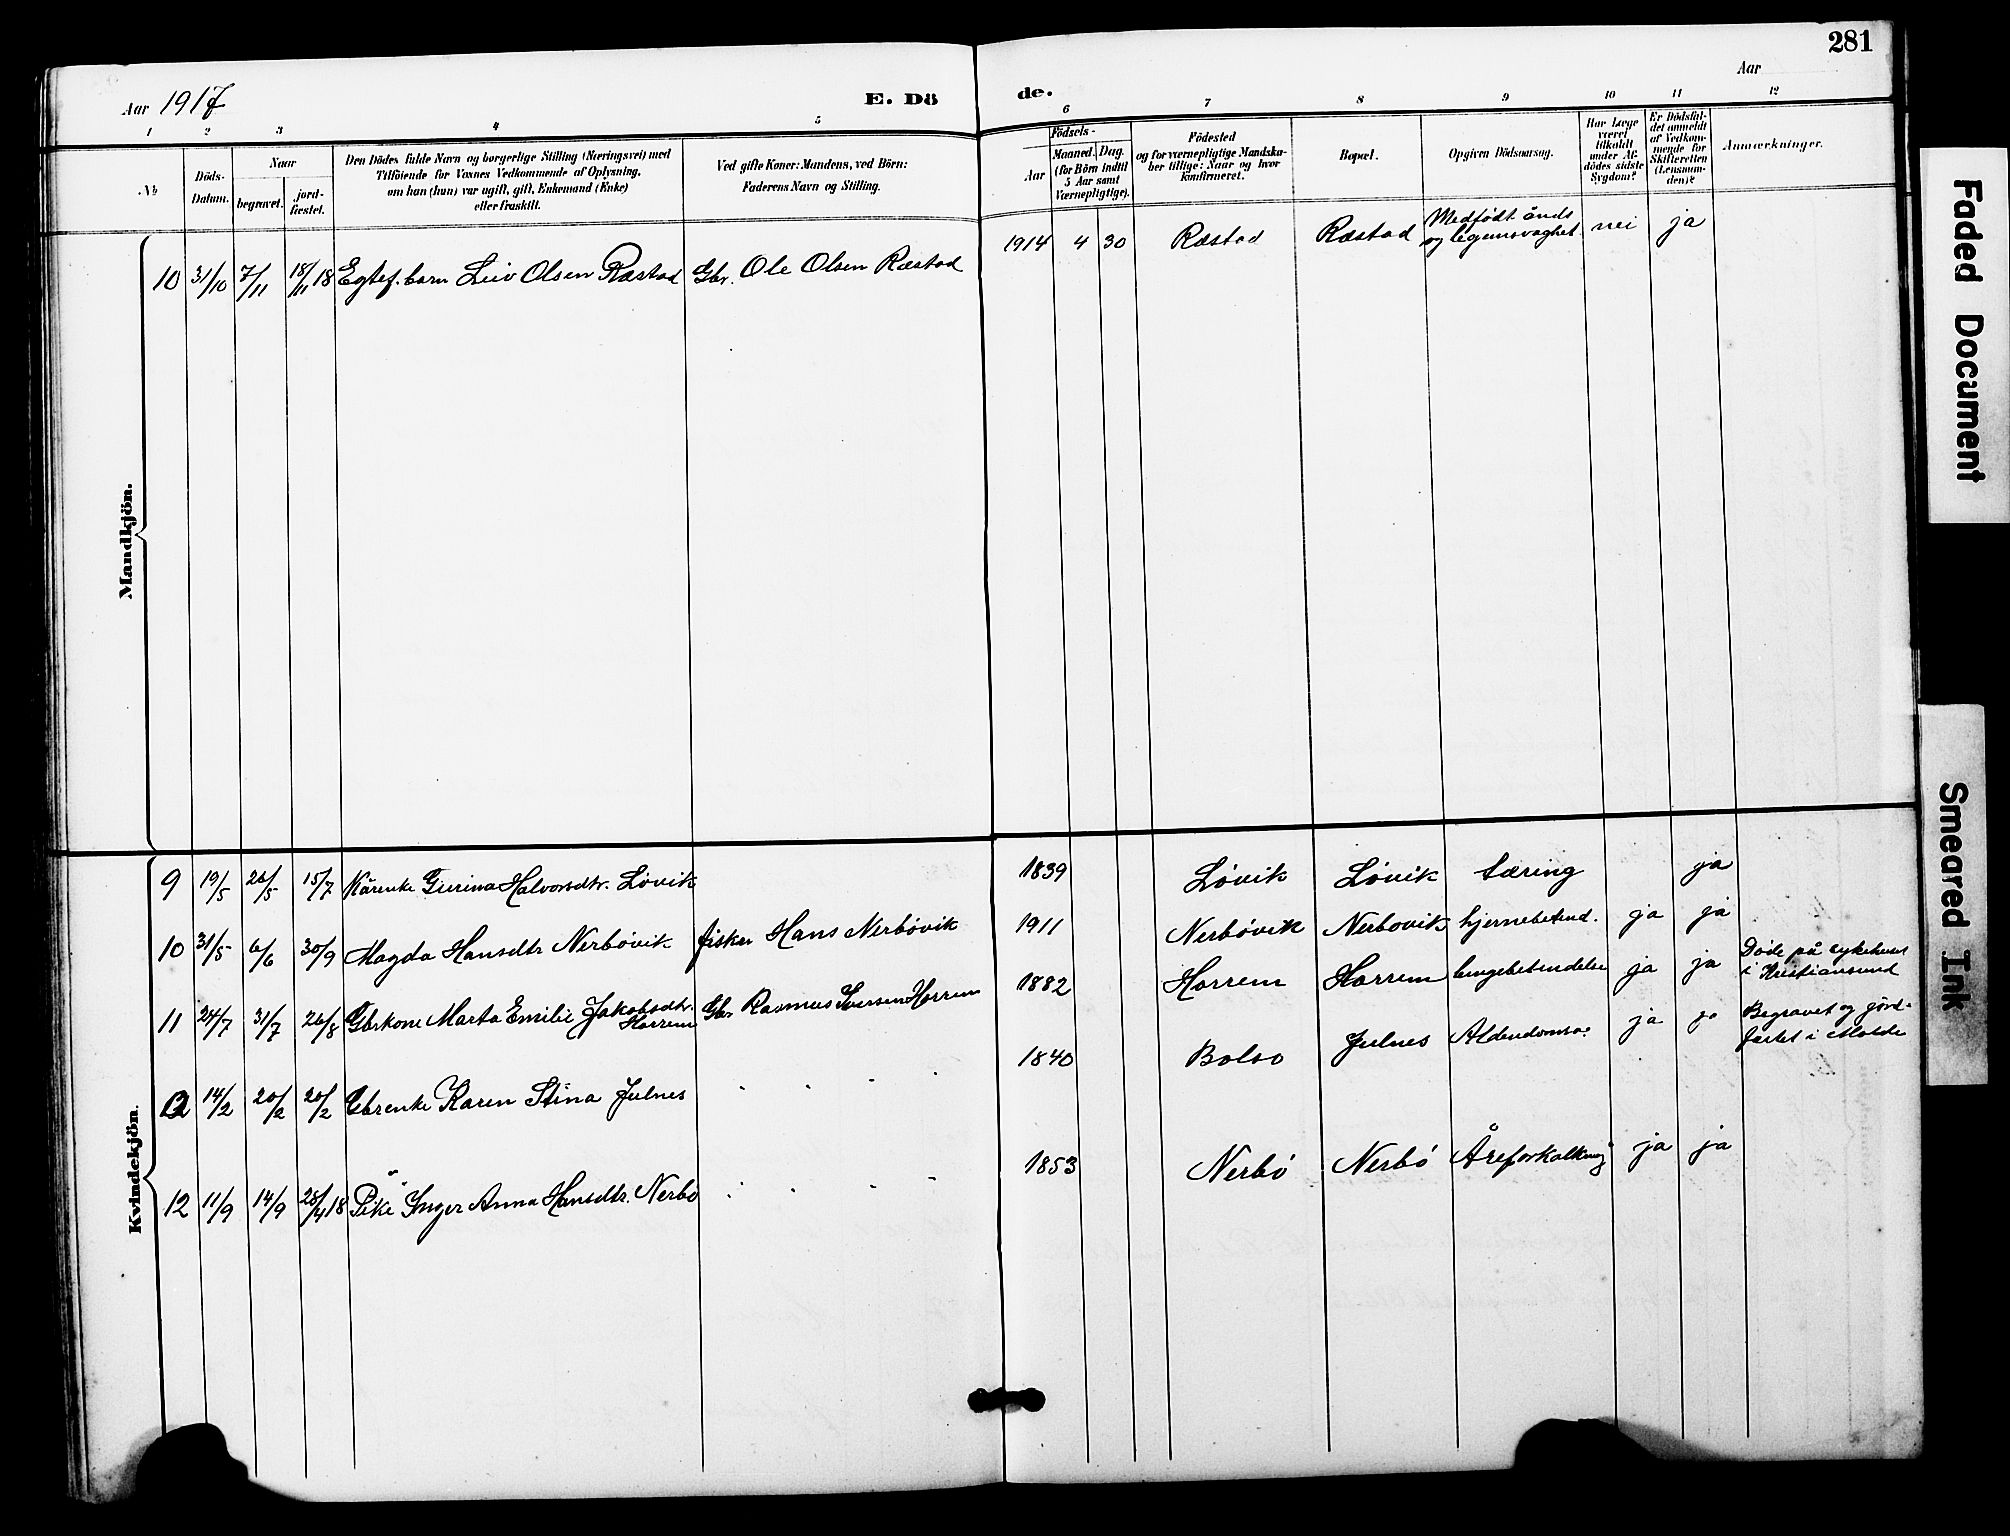 281
Aar 1917
E. Dö
de.
Aar
1 2 3 4 5 6 7 8 9 10 11 12
№
Döds-
Datum.
Naar
begravet.
jord-
fæstet.
Den Dödes fulde Navn og borgerlige Stilling (Næringsvei) med
Tilföiende for Voxnes Vedkommende af Oplysning,
om han (hun) var ugift, gift, Enkemand (Enke)
eller fraskilt.
Ved gifte Koner: Mandens, ved Börn:
Faderens Navn og Stilling.
Födsels-
Aar
Maaned. Dag.
(for Börn indtil
5 Aar samt
Værnepligtige).
Födested
og for værnepligtige Mandska-
ber tillige: Naar og hvor
konfirmeret.
Bopæl.
Opgiven Dödsaarsag.
Har Læge
været
tilkaldt
under Af-
dödes sidste
Sygdom?
Er Dödsfal-
det anmeldt
af Vedkom-
mende for
Skifteretten
(Lensman-
den)?
Anmærkninger.
Mandkjön.
10 31/10 7/11 18/11 18 Egtef. barn Leiv Olsen Ræstad Gbr. Ole Olsen Ræstad 1914 4 30 Ræstad Ræstad Medfödt ånds
og legemsvaghet nei ja
Kvindekjön.
9 19/5 26/5 15/7 Kårenke Gurina Halvorsdtr. Løvik 1839 Løvik Løvik tæring ja
10 31/5 6/6 30/9 Magda Hansdtr Nerbøvik fisker Hans Nerbøvik 1911 Nerbøvik Nerbøvik hjernebetend. ja ja
11 24/7 31/7 26/8 Gbrkone Marta Emilie Jakobsdtr.
Harrem Gbr Rasmus Iversen Harrem 1882 Harrem Harrem lungebetendelse ja ja Døde på sykehuset
i Kristiansund
12 14/2 20/2 20/2 Gbrenke Karen Stina Julnes 1840 Bolsø Julnes Alderdomsv. ja ja Begravet og jord-
fæstet i Molde
12 11/9 14/9 28/4 18 Pike Inger Anna Hansdtr. Nerbø 1853 Nerbø Nerbø Åreforkalkning ja ja
Faded Document
Smeared Ink